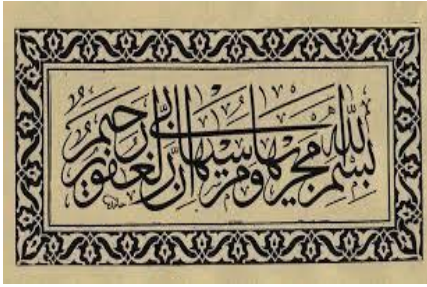 بسم الله مجريها ومرسيها ان ربى لغفور رحيم